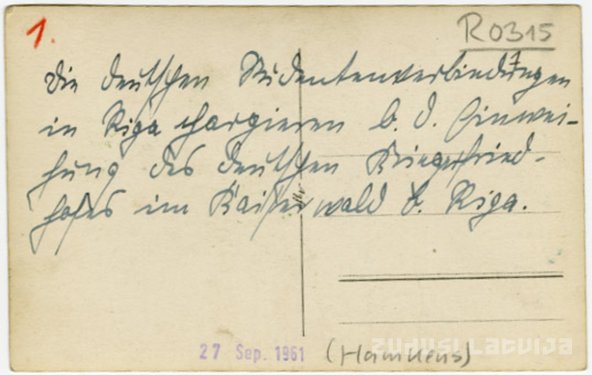 1.
R0315
Die deutschen Studentenverbindungen
in Riga chargieren b. d. Einwei-
hung des deutschen Kriegsfried-
hofes im Kaiserwald b. Riga.
27 Sep. 1961
(Hamkens)
ZUDUSĪ LATVIJA